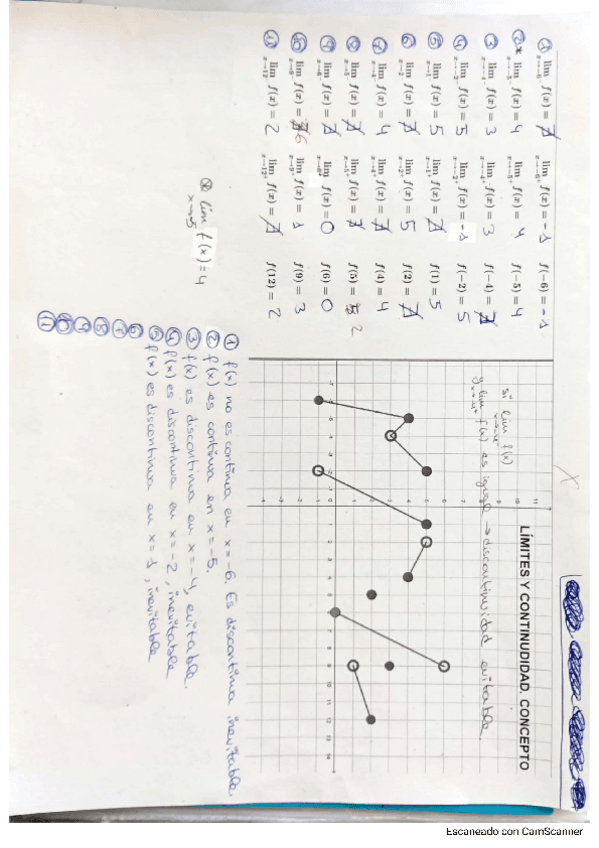 LÍMITES Y CONTINUDIDAD. CONCEPTO
si lim f(x)
y lim f(x) es igual → discontinuidad evitable
① lim x→-6⁻ f(x) = ∄ lim x→-6⁺ f(x) = -1 f(-6) = -1
② * lim x→-5⁻ f(x) = 4 lim x→-5⁺ f(x) = 4 f(-5) = 4
③ lim x→-4⁻ f(x) = 3 lim x→-4⁺ f(x) = 3 f(-4) = ∄
④ lim x→-2⁻ f(x) = 5 lim x→-2⁺ f(x) = -1 f(-2) = 5
⑤ lim x→1⁻ f(x) = 5 lim x→1⁺ f(x) = ∄ f(1) = 5
⑥ lim x→2⁻ f(x) = ∄ lim x→2⁺ f(x) = 5 f(2) = ∄
⑦ lim x→4⁻ f(x) = 4 lim x→4⁺ f(x) = ∄ f(4) = 4
⑧ lim x→5⁻ f(x) = ∄ lim x→5⁺ f(x) = ∄ f(5) = 2
⑨ lim x→6⁻ f(x) = ∄ lim x→6⁺ f(x) = 0 f(6) = 0
⑩ lim x→9⁻ f(x) = 6 lim x→9⁺ f(x) = 1 f(9) = 3
⑪ lim x→12⁻ f(x) = 2 lim x→12⁺ f(x) = ∄ f(12) = 2
⊗ lim x→-5 f(x) = 4
① f(x) no es continua en x=-6. Es discontinua inevitable.
② f(x) es continua en x=-5.
③ f(x) es discontinua en x=-4, evitable.
④ f(x) es discontinua en x=-2, inevitable
⑤ f(x) es discontinua en x=1, inevitable
⑥
⑦
⑧
⑨
⑩
⑪
Escaneado con CamScanner